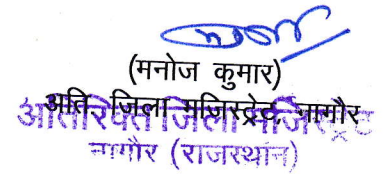 (मनोज कुमार)
अति जिला मजिस्ट्रेट नागौर
अतिरिक्त जिला मजिस्ट्रेट
नागौर (राजस्थान)